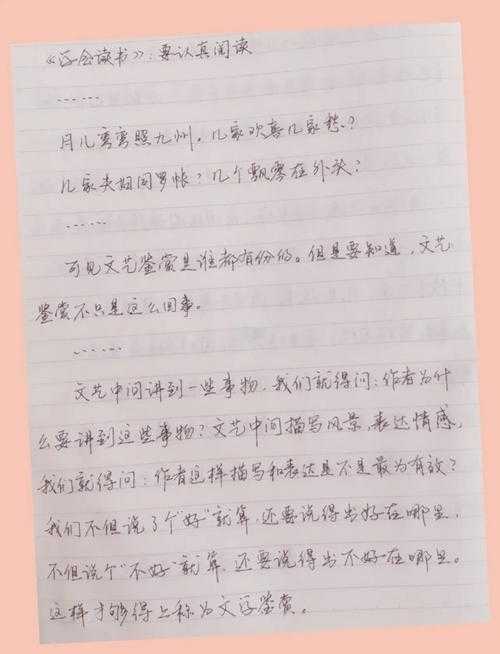 《学会读书》：要认真阅读
……
月儿弯弯照九州，几家欢喜几家愁？
几家夫妇同罗帐？几个飘零在外头？
……
可见文艺鉴赏是谁都有份的。但是要知道，文艺
鉴赏不只是这么回事。
……
文艺中间讲到一些事物，我们就得问：作者为什
么要讲到这些事物？文艺中间描写风景，表达情感，
我们就得问：作者这样描写和表达是不是最为有效？
我们不但说了个“好”就算，还要说得出好在哪里，
不但说个“不好”就算，还要说得出不好在哪里。
这样才够得上称为文学鉴赏。